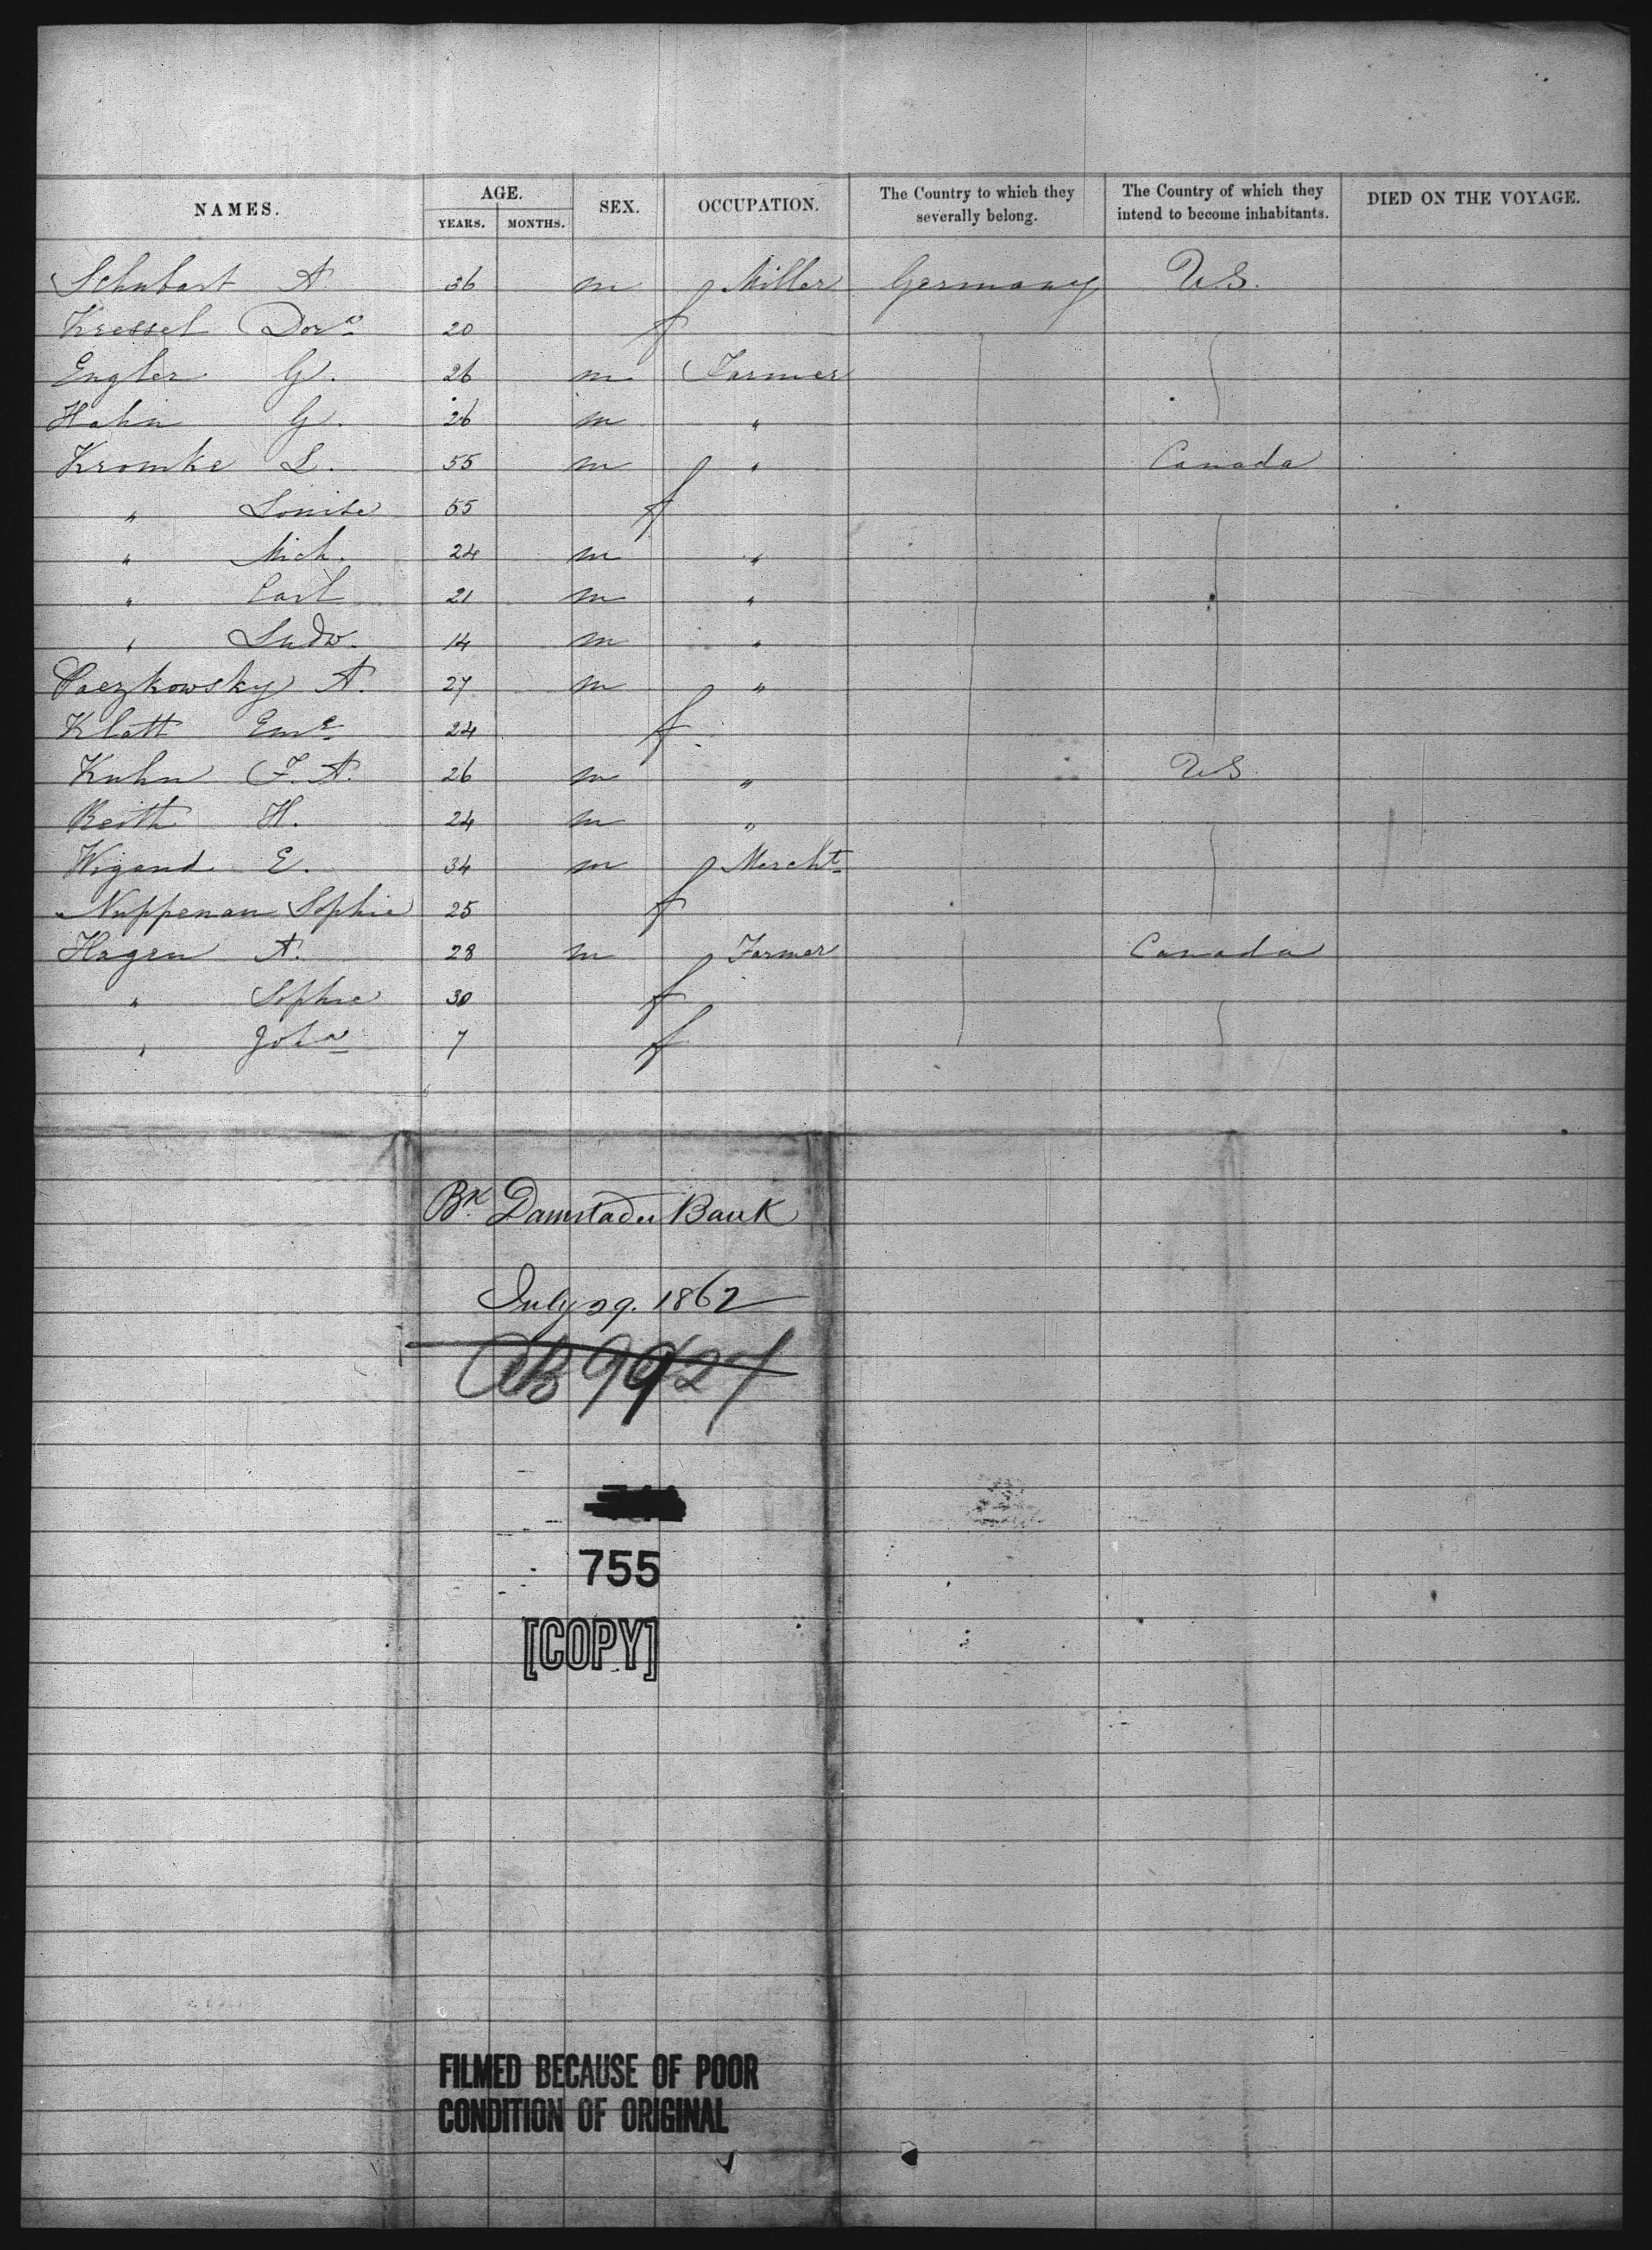 NAMES. AGE. YEARS. MONTHS. SEX. OCCUPATION. The Country to which they severally belong. The Country of which they intend to become inhabitants. DIED ON THE VOYAGE.
Schubart A. 36 m Miller Germany U.S.
Kressel Dora 20 f
Engler G. 26 m Farmer
Hahn G. 26 m "
Kromke L. 55 m " Canada
" Louise 55 f
" Mich. 24 m "
" Carl 21 m "
" Ludw. 14 m "
Paczkowsky A. 27 m "
Klatt Eme 24 f
Kuhn F. A. 26 m " U.S.
Reith H. 24 m "
Wigand E. 34 m Mercht
Nuppenau Sophie 25 f
Hagen A. 28 m Farmer Canada
" Sophie 30 f
" Joha 7 f
Bk Damstader Bank
July 29. 1862
9927
755
[COPY]
FILMED BECAUSE OF POOR
CONDITION OF ORIGINAL